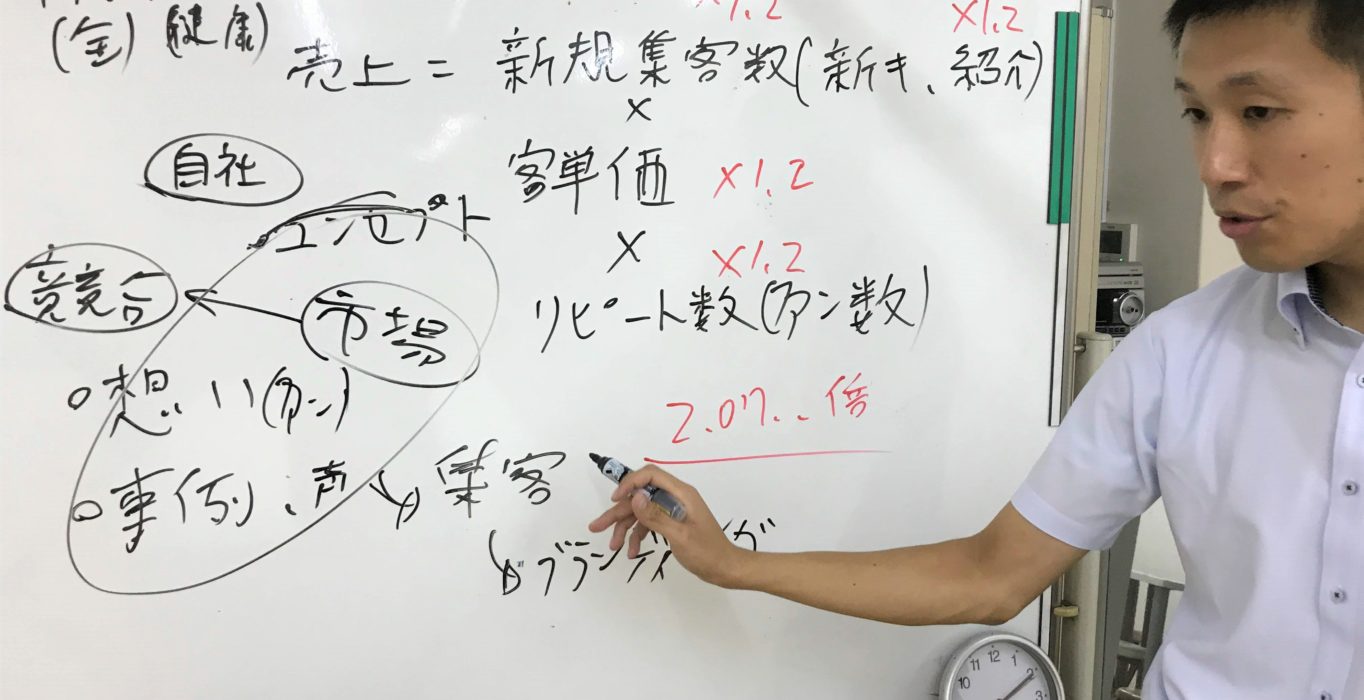 (金) 健康)
x1.2 x1.2
売上 = 新規集客数(新キ、紹介)
x
自社
客単価 x1.2
コンセプト
x x1.2
競合
市場
リピート数(ファン数)
○想い(ファン)
2.07..倍
○事例、声 → 集客
→ブランディング
10 11 12 1 2